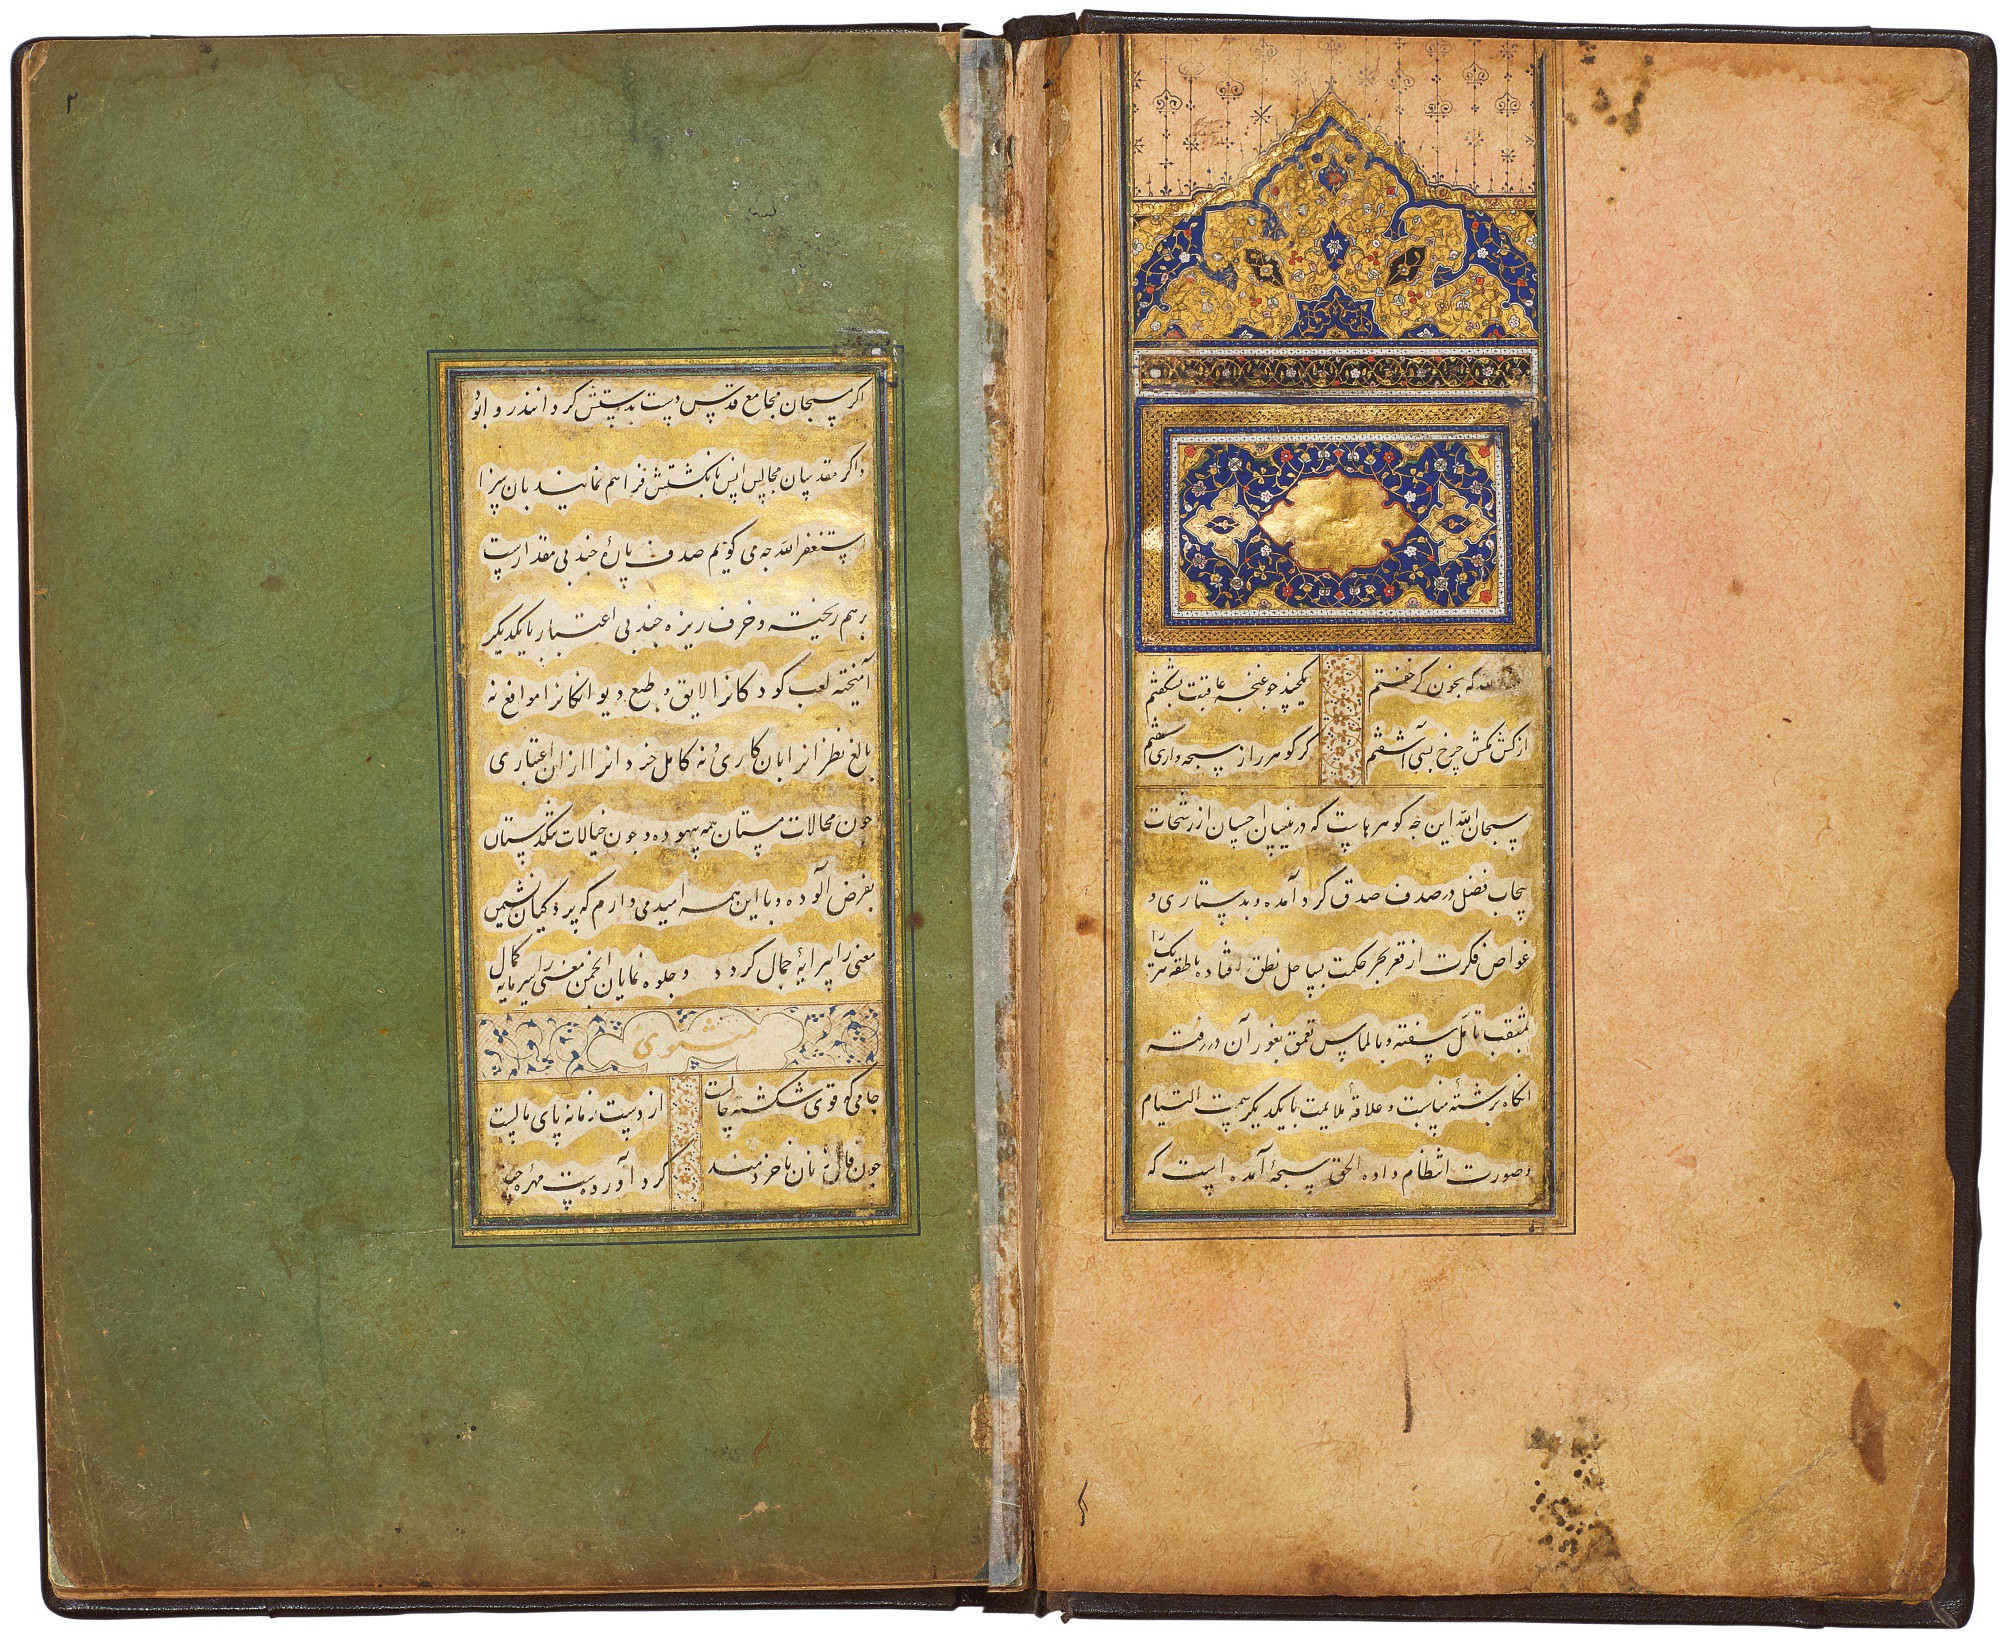 لله که بخون کر خفتم یکچند چو غنچه عاقبت بشکفتم
از کش مکش چرخ بسی آشفتم کز کوهر راز سبحه واری سفتم
سبحان الله این چه کوهرهاست که در نیسان احسان از رشحات
سحاب فضل در صدف صدق کرد آمده و بدستیاری و
غواص فکرت از قعر بحر حکمت بساحل نطق افتاده ناطقه هر یک را
بمثقب تأمل سفته و بالماس تعمق بغور آن در رفته
آنکاه بر رشتهٔ مناسبت و علاقهٔ ملایمت با یکدیکر سمت التیام
و صورت انتظام داده الحق سبحهٔ آمده است که
۲
اکر مسبحان مجامع قدس دست بدستش کردانند رو ابود
و اکر مقدسان مجالس انس بانکشتش فراهم نمایند بآن سزا
استغفر الله چه می کویم صدف پارهٔ چند بی مقدارست
بر هم ریخته و خزف ریزه چند بی اعتبار با یکدیکر
آمیخته لعب کودکانرا لایق و طبع دیوانکانرا موافق نه
بالغ نظرانرا بآن کاری و نه کامل خردانرا از آن اعتباری
چون محالات مستان همه بیهوده و چون خیالات تنکدستان
بغرض آلوده و با این همه امید می دارم که پردکیان نشیمن
معنی را پیرایهٔ جمال کردد و جلوه نمایان انجمن معنی را سرمایه کمال
مثنوی
جامی که قوی شکسته حالست از دست زمانه پای مالست
چون فال زنان ناخردمند کرد آورده ست مهره چند